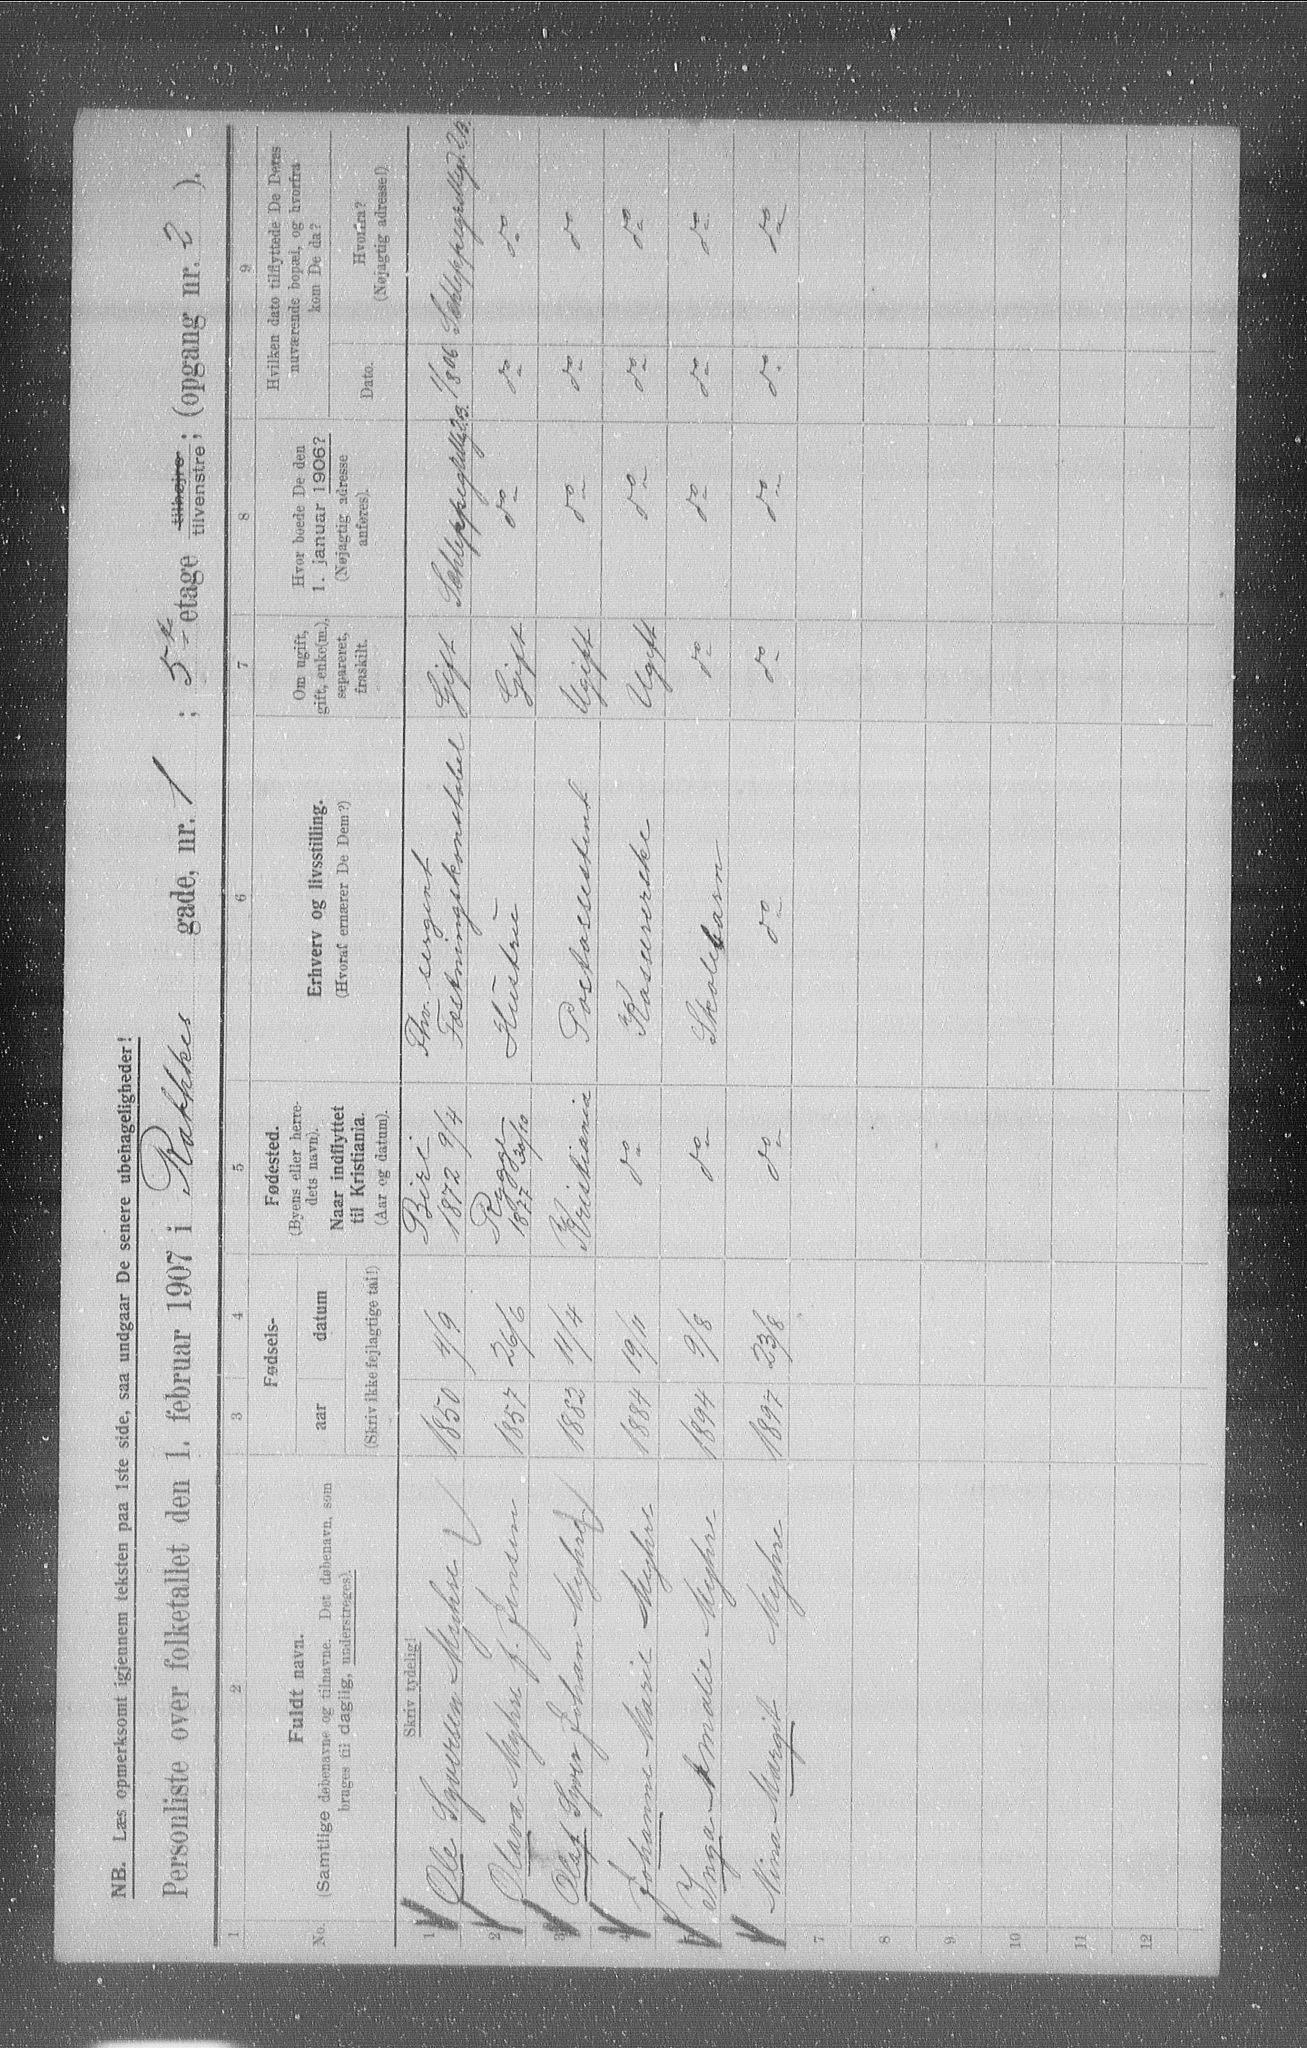 NB. Læs opmerksomt igjennem teksten paa 1ste side, saa undgaar De senere ubehageligheder!
Personliste over folketallet den 1. februar 1907 i Rathkes gade, nr. 1 ; 5te etage tilhøjre tilvenstre; (opgang nr. 2 ).
1 2 3 4 5 6 7 8 9
No.
Fuldt navn.
(Samtlige døbenavne og tilnavne. Det døbenavn, som
bruges til daglig, understreges).
Fødsels-
aar datum
(Skriv ikke fejlagtige tal!)
Fødested.
(Byens eller herre-
dets navn).
Naar indflyttet
til Kristiania.
(Aar og datum).
Erhverv og livsstilling.
(Hvoraf ernærer De Dem?)
Om ugift,
gift, enke(m.),
separeret,
fraskilt.
Hvor boede De den
1. januar 1906?
(Nøjagtig adresse
anføres).
Hvilken dato tilflyttede De Deres
nuværende bopæl, og hvorfra
kom De da?
Dato.
Hvorfra?
(Nøjagtig adresse!)
Skriv tydelig!
1 Ole Syversen Myhre 1850 4/9 Biri 1872 9/4 Fhv. sergint Fæstningskonstabel Gift
2 Olava Myhre f. Jensen 1857 26/6 Rygge 1877 30/10 Hustru Gift do do do
3 Olaf Syver Johan Myhre 1882 14/4 Kristiania Postassistent Ugift do do do
4 Johanne Marie Myhre 1884 19/11 do Kassererske Ugift do do do
5 Inga Amalie Myhre 1894 9/8 do Skolebarn do do do do
6 Nina Margit Myhre 1897 23/8 do do do do do do
7
8
9
10
11
12